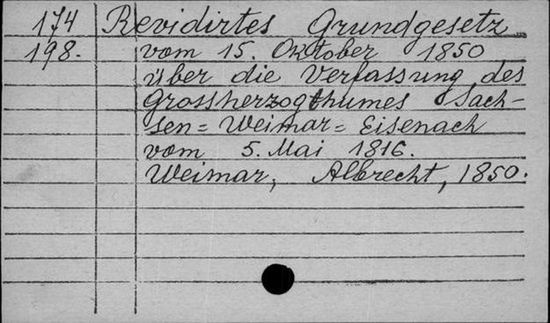 174 Revidirtes Grundgesetz
198. vom 15. Oktober 1850
über die Verfassung des
Grossherzogthumes Sach-
sen=Weimar=Eisenach
vom 5. Mai 1816.
Weimar, Albrecht, 1850.